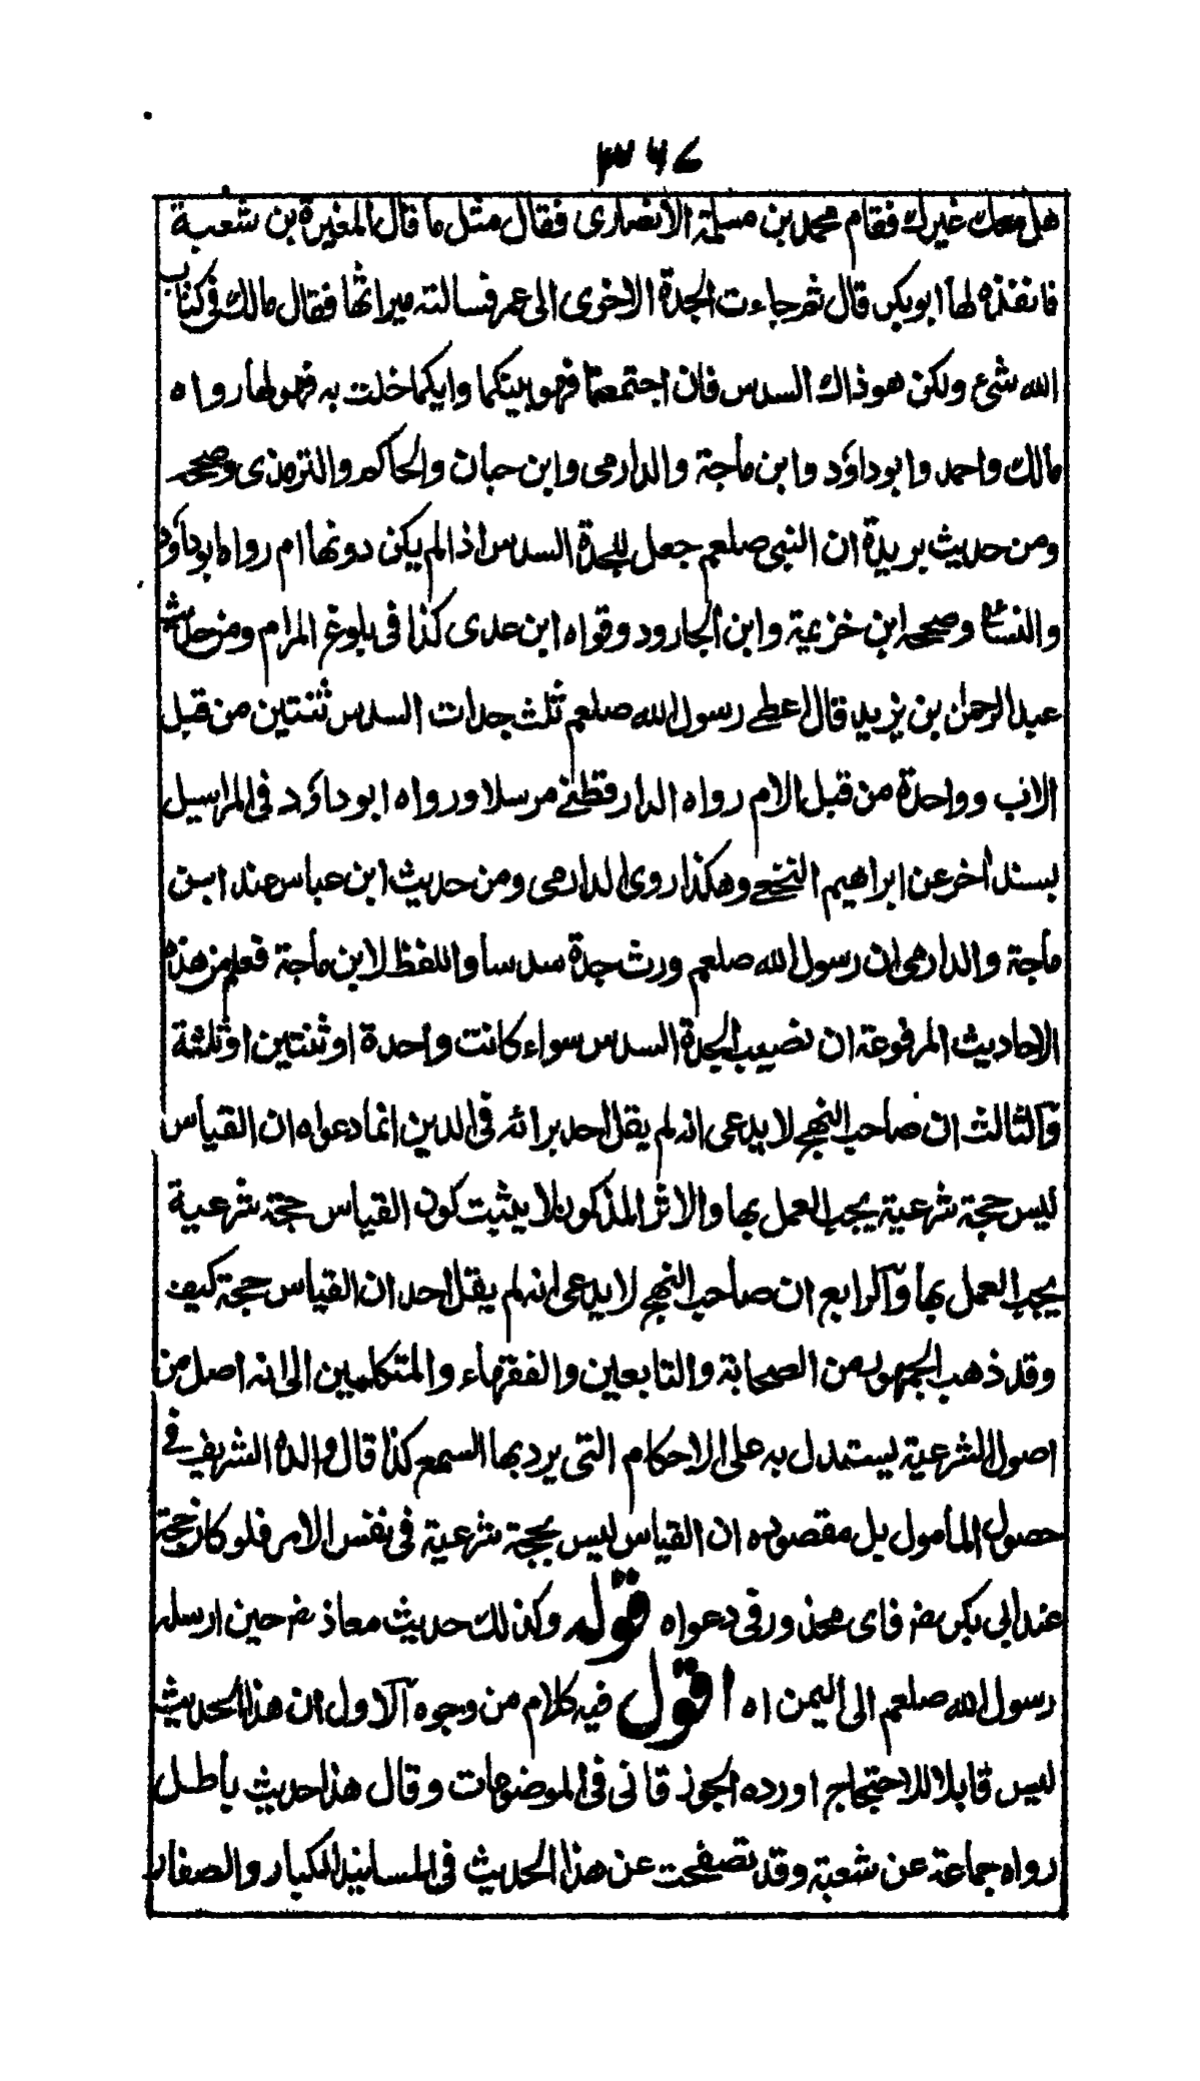 ٣٦٧
هل معك غيرك فقام محمد بن مسلمة الانصارى فقال مثل ما قال المغيرة بن شعبة
فانفذه لها ابو بكر قال ثم جاءت الجدة الاخرى الى عمر فسالته ميراثها فقال مالك فى كتاب
الله شئ ولكن هو ذاك السدس فان اجتمعتما فهو بينكما وايكما خلت به فهو لها رواه
مالك واحمد وابوداؤد وابن ماجة والدارمى وابن حبان والحاكم والترمذى وصححه
ومن حديث بريدة ان النبى صلعم جعل للجدة السدس اذا لم يكن دونها ام رواه ابوداؤد
والنسائى وصححه ابن خزيمة وابن الجارود وقواه ابن عدى كذا فى بلوغ المرام ومن حديث
عبد الرحمن بن يزيد قال اعطے رسول الله صلعم ثلث جدات السدس ثنتين من قبل
الاب وواحدة من قبل الام رواه الدارقطنے مرسلا ورواه ابوداؤد فى المراسيل
بسند اخر عن ابراهيم النخعے وهكذا روى الدارمى ومن حديث ابن عباس عند ابن
ماجة والدارمى ان رسول الله صلعم ورث جدة سدسا واللفظ لابن ماجة فعلم من هذه
الاحاديث المرفوعة ان نصيب الجدة السدس سواء كانت واحدة او ثنتين او ثلثة
والثالث ان صاحب النهج لا يدعى انه لم يقل احد برائه فى الدين انما دعواه ان القياس
ليس حجة شرعية يجب العمل بها والاثر المذكور لا يثبت كون القياس حجة شرعية
يجب العمل بها والرابع ان صاحب النهج لا يدعى انه لم يقل احد ان القياس حجة كيف
وقد ذهب الجمهور من الصحابة والتابعين والفقهاء والمتكلمين الى انه اصل من
اصول الشرعية يستدل به على الاحكام التى يرد بها السمع كذا قال والده الشريف فے
حصول المامول بل مقصوده ان القياس ليس بحجة شرعية فى نفس الامر فلو كان حجة
عند ابى بكر رض فاى محذور فى دعواه قوله وكذلك حديث معاذ رض حين ارسله
رسول الله صلعم الى اليمن اه اقول فيه كلام من وجوه الاول ان هذا الحديث
ليس قابلا للاحتجاج اورده الجوزقانى فى الموضوعات وقال هذا حديث باطل
رواه جماعة عن شعبة وقد تصفحت عن هذا الحديث فى المسانيد الكبار والصغار